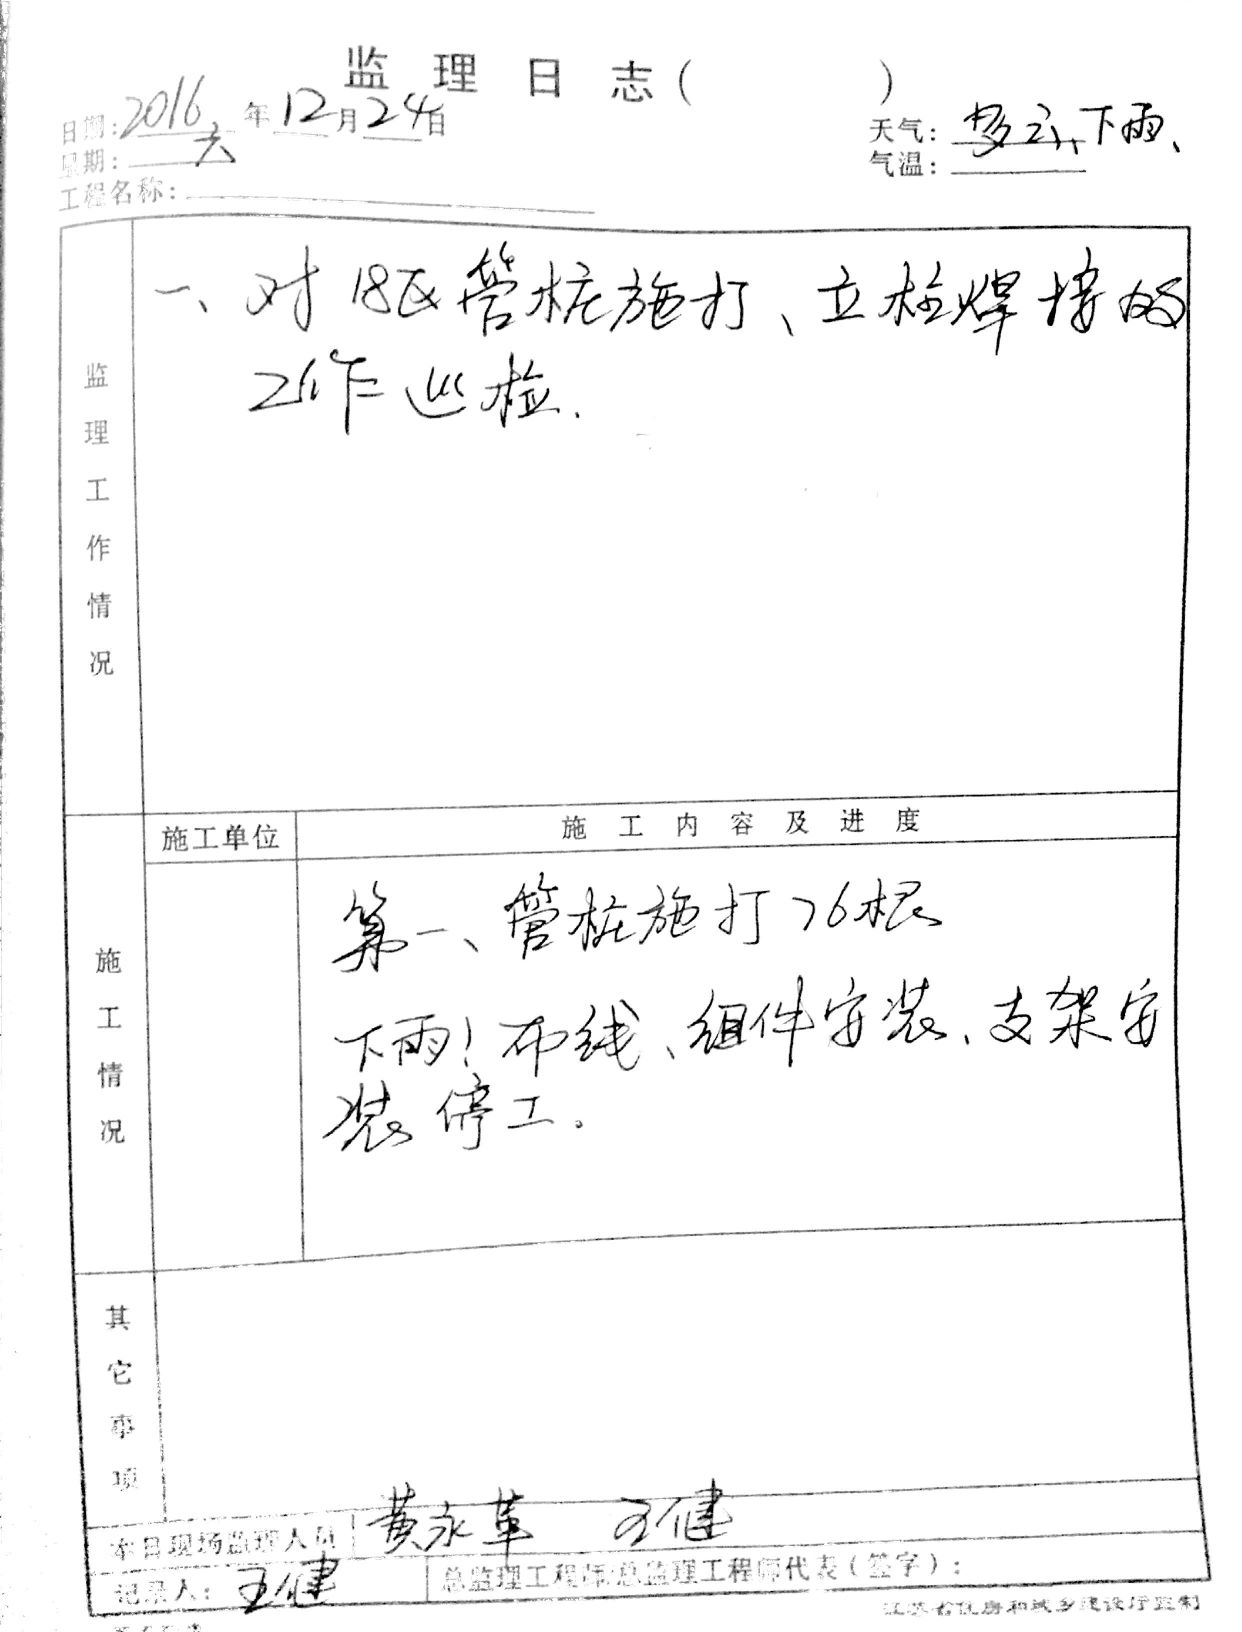 监理日志（ ）
日期：2016年12月24日
天气：多云、下雨、
星期：六
气温：
工程名称：
监理工作情况
一、对18区管桩施打、立柱焊接的
工作巡检.
施工单位
施工内容及进度
施工情况
第一、管桩施打76根
下雨！布线、组件安装、支架安
装停工。
其它事项
本日现场监理人员 黄永革 王健
记录人：王健
总监理工程师/总监理工程师代表（签字）：
江苏省住房和城乡建设厅监制